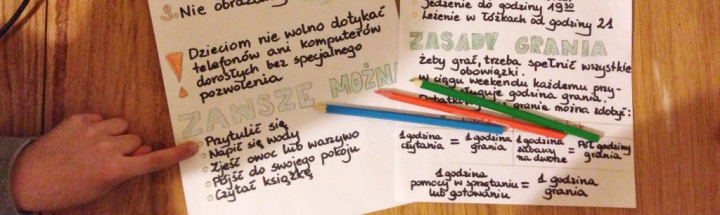 3. Nie obrażamy
! Dzieciom nie wolno dotykać
telefonów ani komputerów
dorosłych bez specjalnego
pozwolenia
ZAWSZE MOŻNA
Przytulić się
Napić się wody
Zjeść owoc lub warzywo
Pójść do swojego pokoju
Czytać książkę
Jedzenie do godziny 19:30
Leżenie w łóżkach od godziny 21
ZASADY GRANIA
żeby grać, trzeba spełnić wszystkie
obowiązki.
w ciągu weekendu każdemu przy-
godzina grania.
grania można zdobyć:
1 godzina czytania = 1 godzina grania
1 godzina zabawy na dworze = Pół godziny grania
1 godzina pomocy w sprzątaniu lub gotowaniu = 1 godzina grania